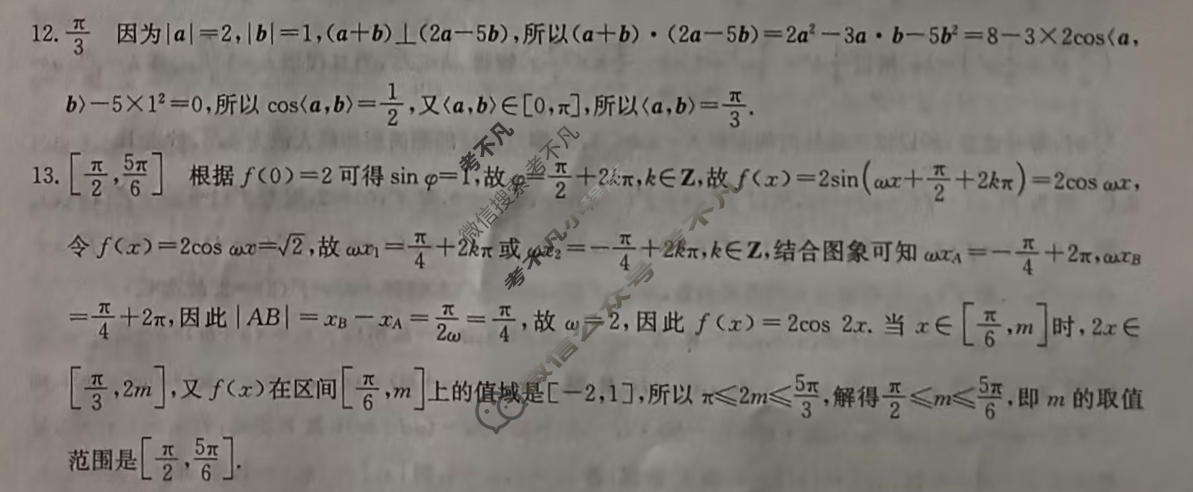 12. π/3 因为|a|=2,|b|=1,(a+b)⊥(2a-5b),所以(a+b)·(2a-5b)=2a²-3a·b-5b²=8-3×2cos⟨a,
b⟩-5×1²=0,所以 cos⟨a,b⟩=1/2,又⟨a,b⟩∈[0,π],所以⟨a,b⟩=π/3.
13. [π/2,5π/6] 根据 f(0)=2 可得 sin φ=1,故 φ=π/2+2kπ,k∈Z,故 f(x)=2sin(ωx+π/2+2kπ)=2cos ωx,
令 f(x)=2cos ωx=√2,故 ωx₁=π/4+2kπ 或 ωx₂=-π/4+2kπ,k∈Z,结合图象可知 ωx_A=-π/4+2π,ωx_B
=π/4+2π,因此|AB|=x_B-x_A=π/2ω=π/4,故 ω=2,因此 f(x)=2cos 2x. 当 x∈[π/6,m]时,2x∈
[π/3,2m],又 f(x)在区间[π/6,m]上的值域是[-2,1],所以 π≤2m≤5π/3,解得π/2≤m≤5π/6,即 m 的取值
范围是[π/2,5π/6].
微信搜索考不凡
考不凡小
微信公众号 考不凡